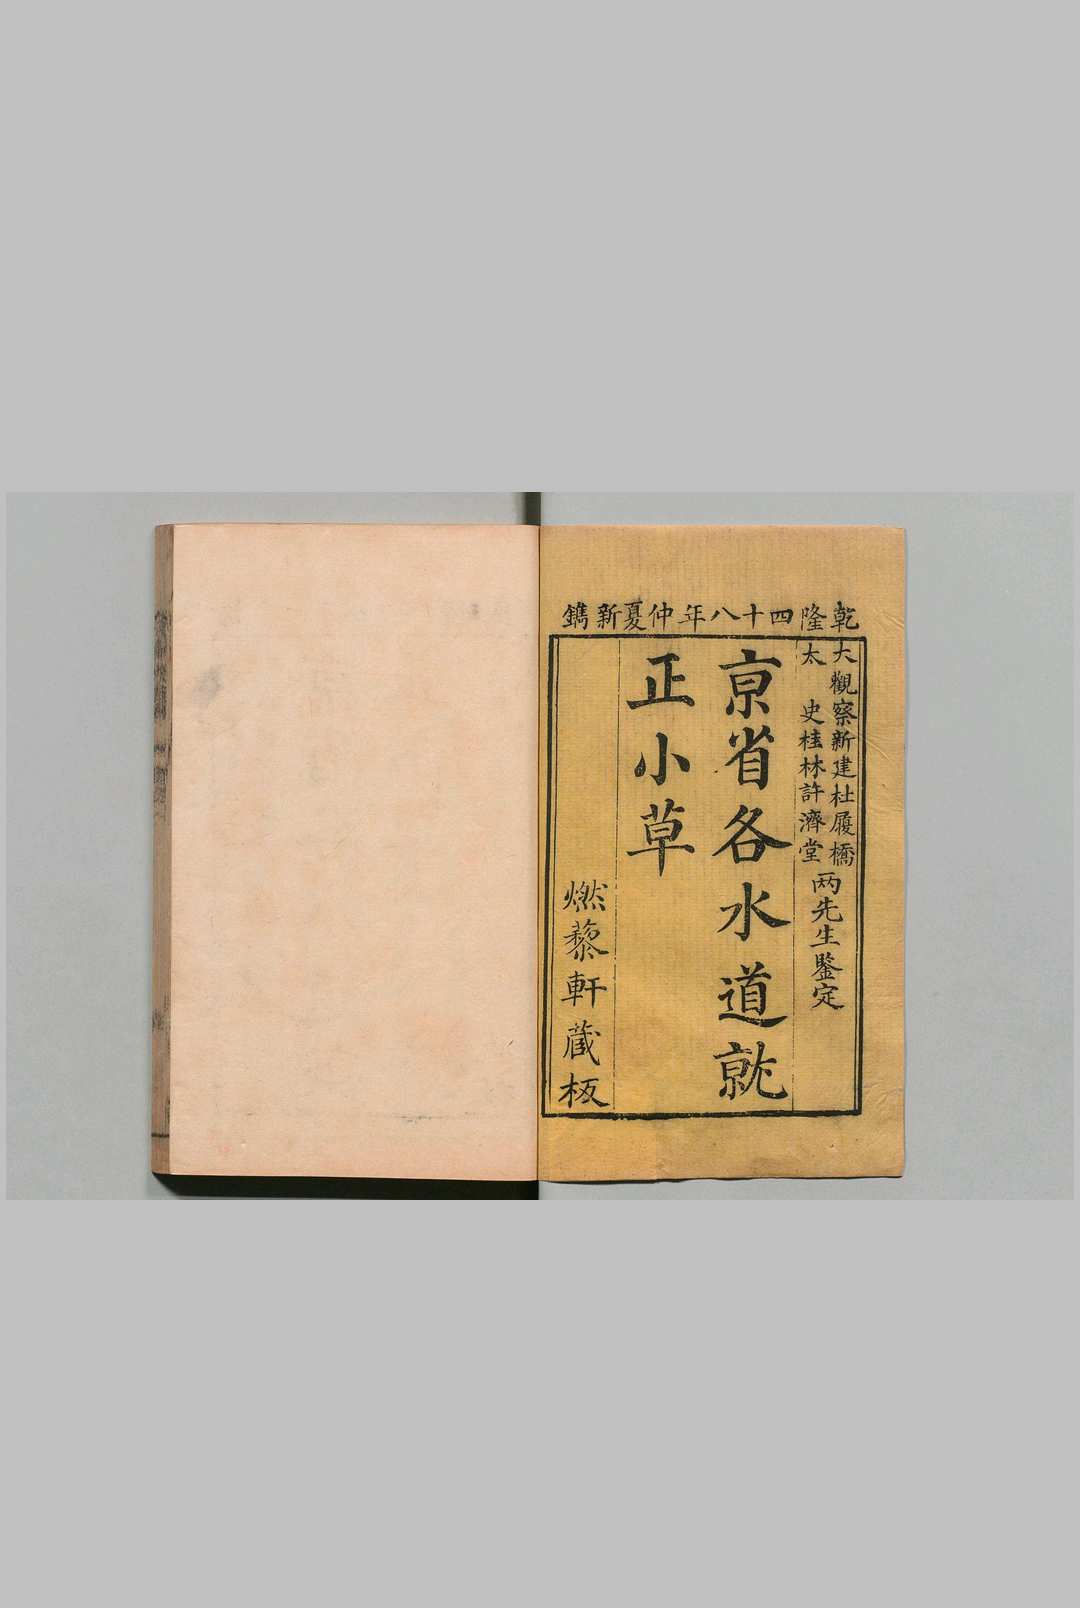 乾隆四十八年仲夏新鐫
大觀察新建杜履橋
太史桂林許濟堂
两先生鑒定
亰省各水道就
正小草
燃藜軒蔵板